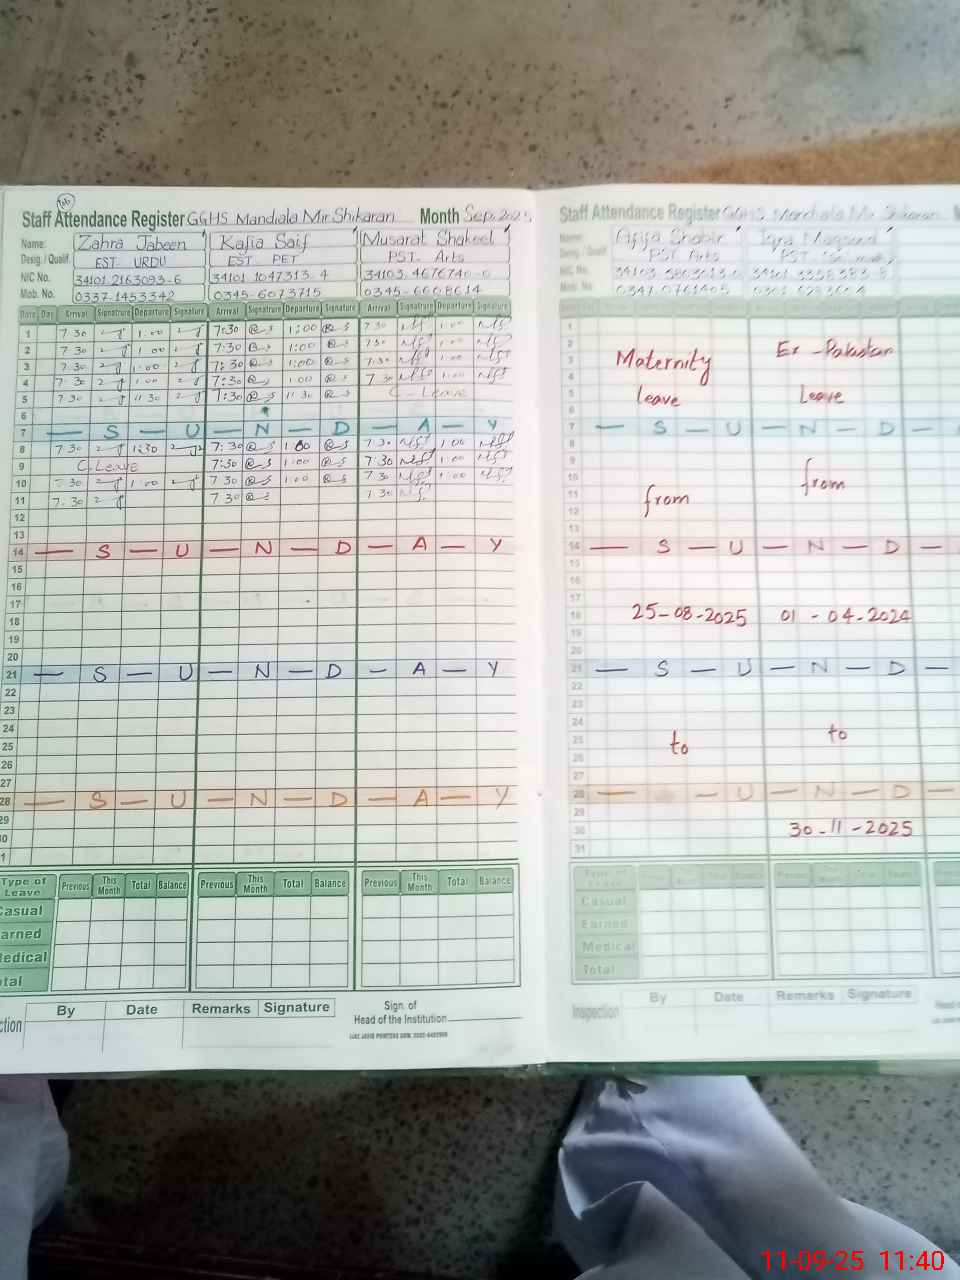 Staff Attendance Register GGHS Mandiala Mir Shikaran Month Sep, 2025
Name: Zahra Jabeen Kafia Saif Musarat Shakeel
Desig./Qualif. EST URDU EST PET PST Arts
NIC No. 34101 2163093-6 34101 1047313-4 34103 4676740-
Mob. No. 0337-1453342 0345-6073715 0345-6608614
Date Day Arrival Signature Departure Signature Arrival Signature Departure Signature Arrival Signature Departure Signature
1 7 30 1 00 7:30 1:00 7 30 1 00
2 7 30 1 00 7:30 1:00 7 30 1 00
3 7 30 1:00 7:30 1:00 7:30 1:00
4 7 30 1:00 7:30 1:00 7 30 1:00
5 7 30 11 30 7:30 11 30 C-Leave
6
7 — S — U — N — D — A — Y
8 7 30 1:30 7:30 1:00 7 30 1 00
9 C.Leave 7:30 1:00 7 30 1:00
10 7 30 1:00 7 30 1:00 7 30 1:00
11 7:30 7 30 7 30
12
13
14 — S — U — N — D — A — Y
15
16
17
18
19
20
21 — S — U — N — D — A — Y
22
23
24
25
26
27
28 — S — U — N — D — A — Y
29
30
1
Type of Leave Previous This Month Total Balance Previous This Month Total Balance Previous This Month Total Balance
Casual
arned
edical
tal
ction By Date Remarks Signature Sign. of
Head of the Institution
Staff Attendance Register GGHS Mandiala Mir Shikaran
Name: Afifa Shabir Iqra Maqsood
Desig./Qualif. PST Arts PST
NIC No.
Mob. No. 0347 0761405
1
2
3 Maternity Ex-Pakistan
4
5 leave Leave
6
7 — S — U — N — D —
8
9
10 from
11 from
12
13
14 — S — U — N — D —
15
16
17
18 25-08-2025 01-04-2024
19
20
21 — S — U — N — D —
22
23
24
25 to to
26
27
28 — — U — N — D —
29
30 30-11-2025
31
Type of Leave Total Balance
Casual
Earned
Medical
Total
Inspection By Date Remarks Signature
11-09-25 11:40